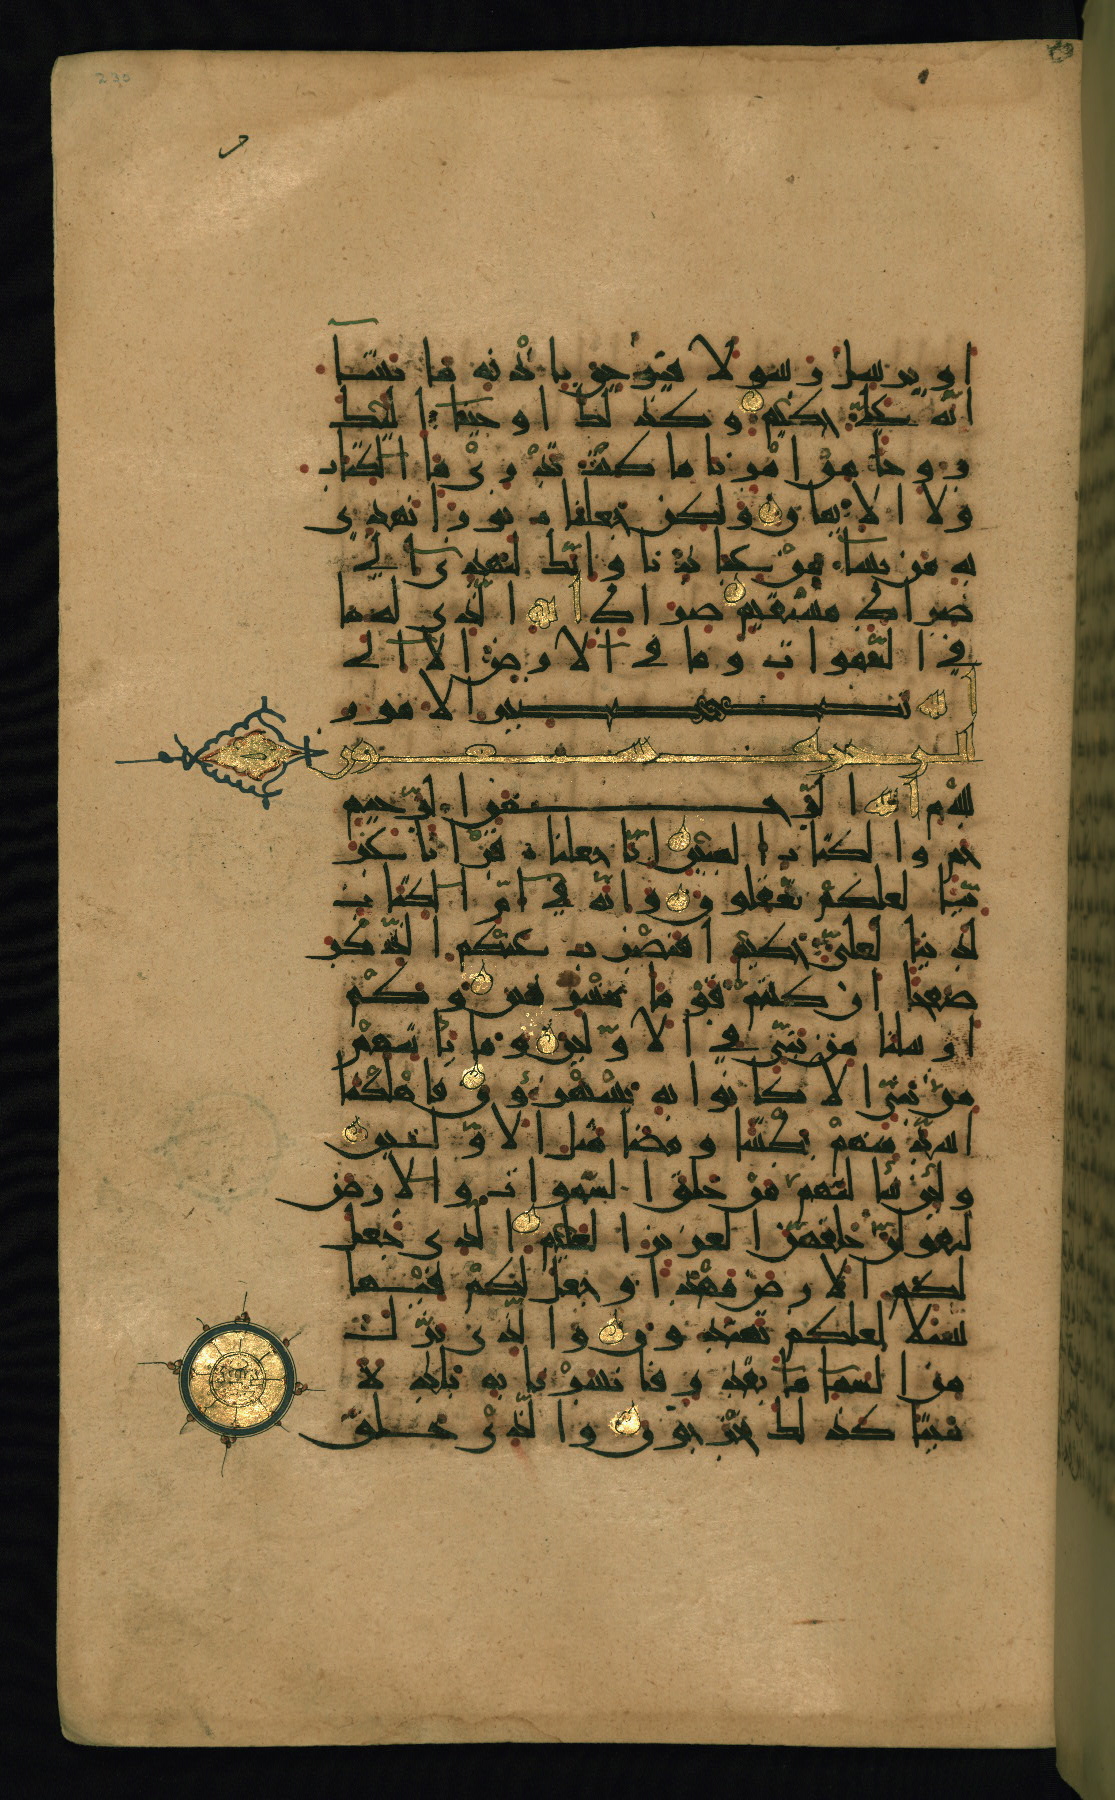 230
او يرسل رسولا فيوحي باذنه ما يشا
انه علي حكيم وكذلك اوحينا اليك
روحا من امرنا ما كنت تدري ما الكتاب
ولا الايمان ولكن جعلناه نورا نهدي
به من نشا من عبادنا وانك لتهدي الي
صراط مستقيم صراط الله الذي له ما
في السموات وما في الارض الا الي
الله تصير الامور
الزخرف
بسم الله الرحمن الرحيم
حم والكتاب المبين انا جعلناه قرانا عر
بيا لعلكم تعقلون وانه في ام الكتاب
لدينا لعلي حكيم افنضرب عنكم الذكر
صفحا ان كنتم قوما مسرفين وكم
ارسلنا من نبي في الاولين وما ياتيهم
من نبي الا كانوا به يستهزون فاهلكنا
اشد منهم بطشا ومضا مثل الاولين
ولئن سالتهم من خلق السموات والارض
ليقولن خلقهن العزيز العليم الذي جعل
لكم الارض مهدا وجعل لكم فيها
سبلا لعلكم تهتدون والذي نزل
من السما ما بقدر فانشرنا به بلدة
ميتا كذلك تخرجون والذي خلق